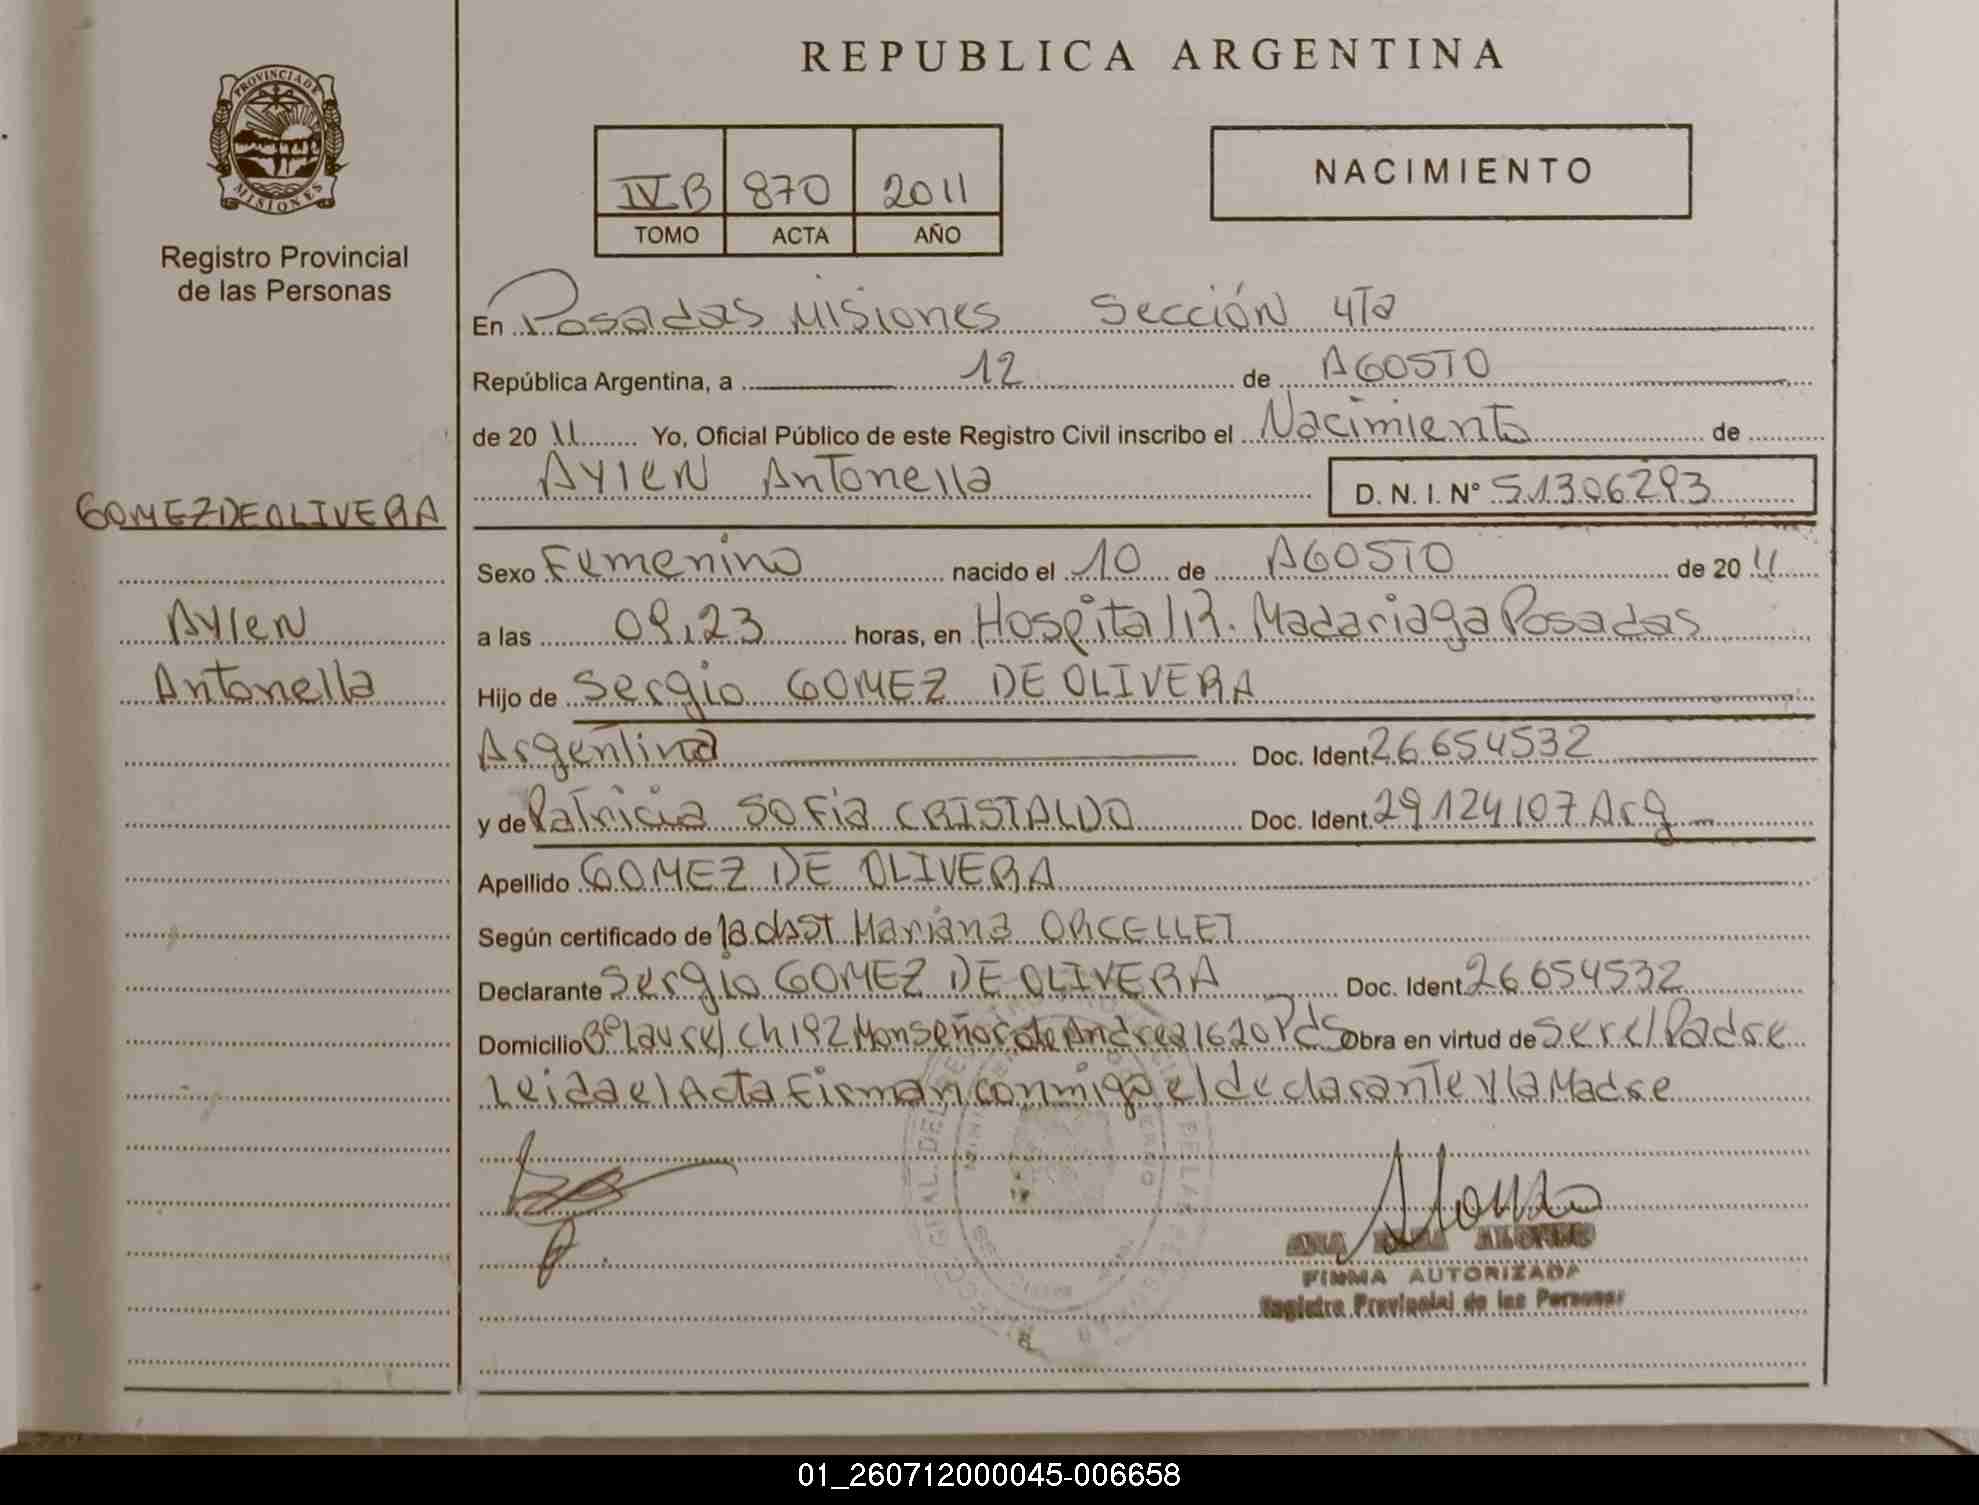 REPUBLICA ARGENTINA
PROVINCIA DE
MISIONES
Registro Provincial
de las Personas
IV B 870 2011
TOMO ACTA AÑO
NACIMIENTO
En Posadas Misiones Sección 4Ta
República Argentina, a 12 de AGOSTO
de 20 11 Yo, Oficial Público de este Registro Civil inscribo el Nacimiento de
AYlEN Antonella D. N. I. N° 51306293
GOMEZ DE OLIVERA
AYlEN
Antonella
Sexo Femenino nacido el 10 de AGOSTO de 20 11
a las 09,23 horas, en Hospital R. Madariaga Posadas
Hijo de Sergio GOMEZ DE OLIVERA
Argentina Doc. Ident. 26654532
y de Patricia SOFia CRISTALDO Doc. Ident. 29124107 Arg
Apellido GOMEZ DE OLIVERA
Según certificado de la obst Mariana ORCELLET
Declarante Sergio GOMEZ DE OLIVERA Doc. Ident. 26654532
Domicilio B° Laurel ch 192 Monseñor de Andrea 1620 Pds Obra en virtud de ser el Padre
Leida el Acta Firman conmigo el declarante y la Madre
Alonso
ANA ALONSO
FIRMA AUTORIZADA
Registro Provincial de las Personas
01_260712000045-006658